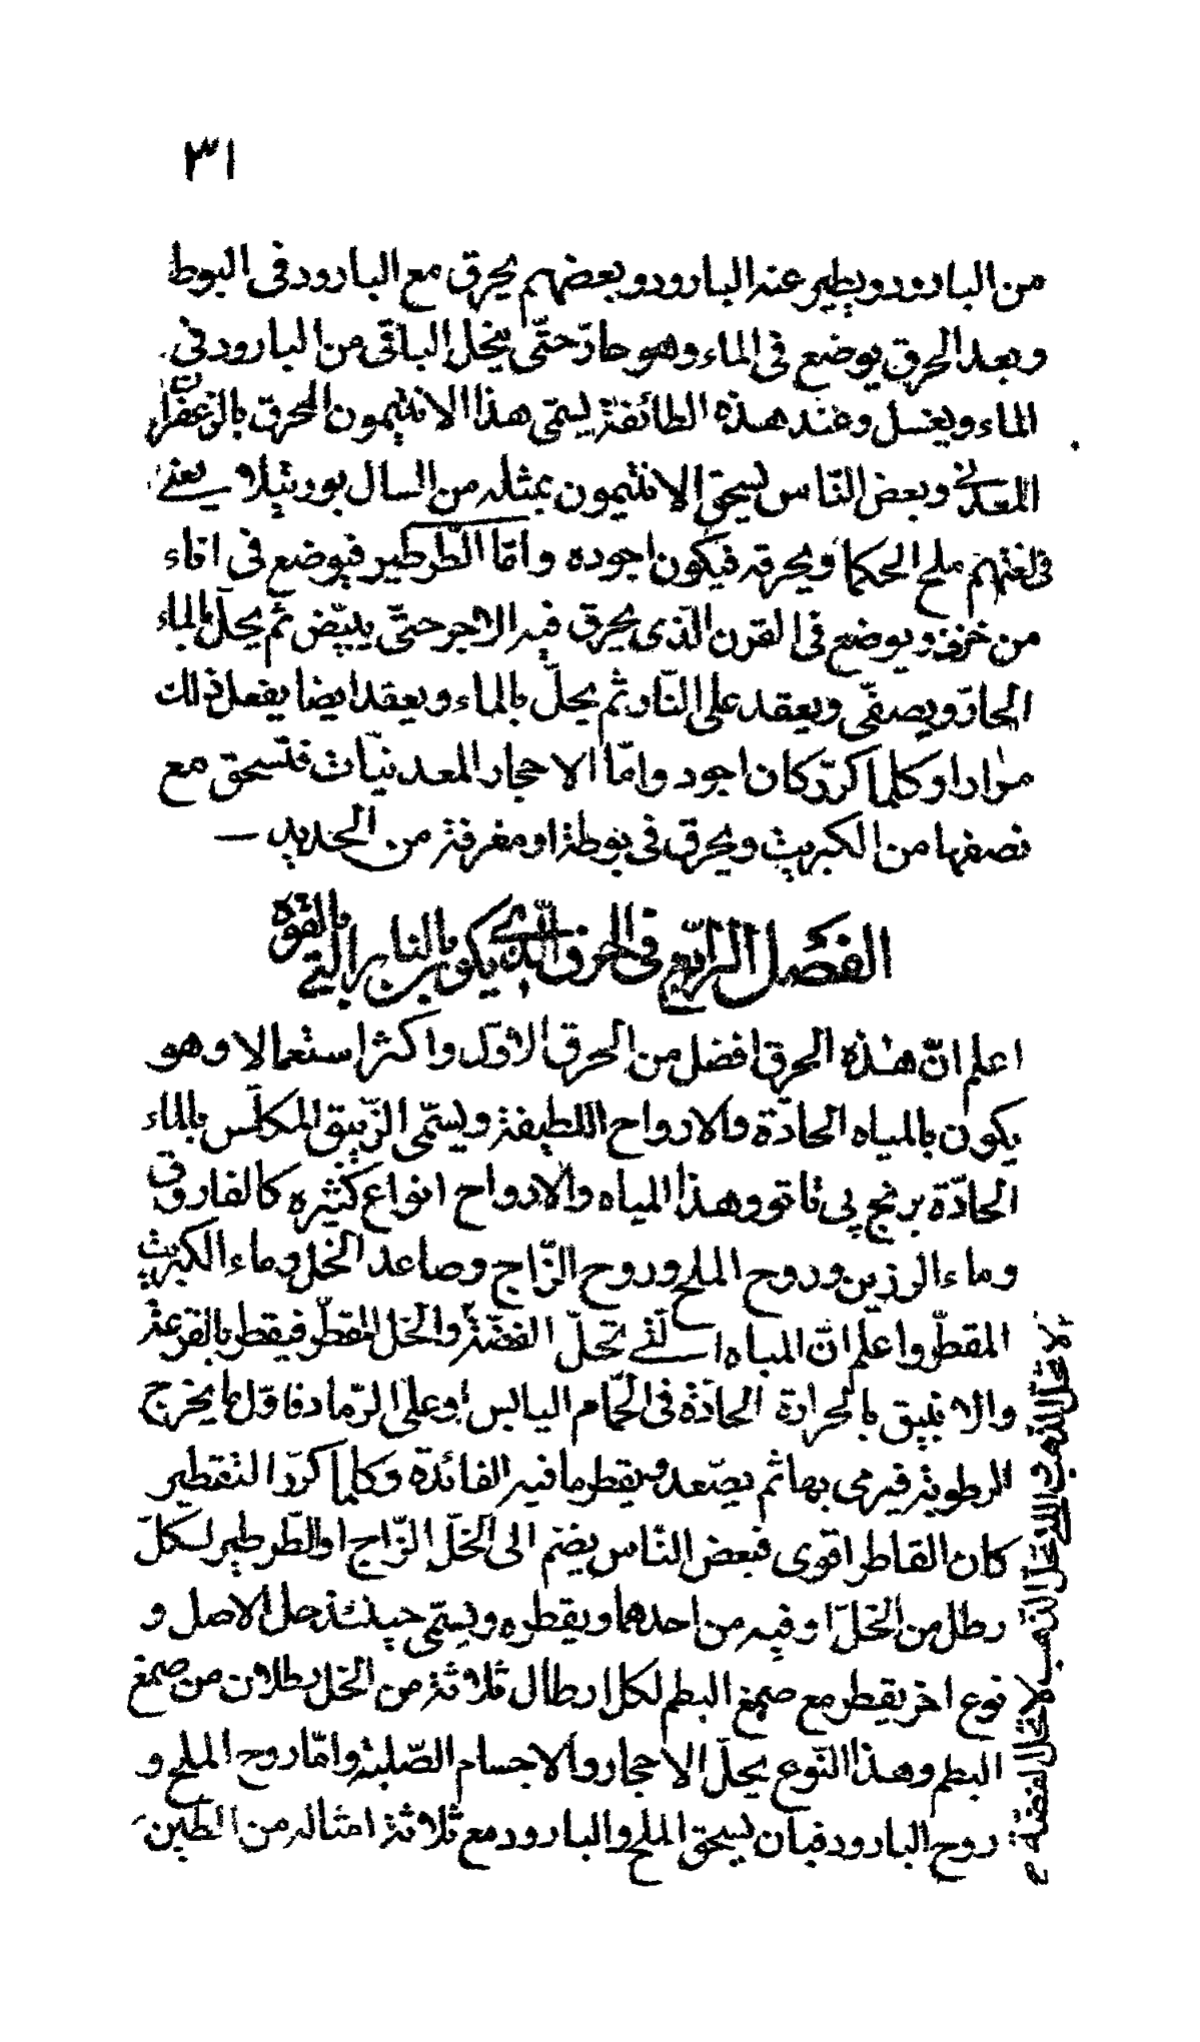 ٣١
من البارود ويطير عنه البارود وبعضهم يحرق مع البارود فى البوط
وبعد الحرق يوضع فى الماء وهو حارّ حتّى ينحل الباقى من البارود فى
الماء ويغسل وعند هذه الطائفة يسمّى هذا الانتيمون المحرق بالزعفران
المعدنى وبعض النّاس يسحق الانتيمون بمثله من السال بورتيلا يعنى
فى لغتهم ملح الحكما ويحرقه فيكون اجوده وامّا الطّرطير فيوضع فى اناء
من خزف ويوضع فى القرن الّذى يحرق فيه الاجر حتّى يبيّض ثم يحلّ بالماء
الحارّ ويصفّى ويعقد على النّار ثم يحلّ بالماء ويعقد ايضا يفعل ذلك
مرارا وكلما كرّر كان اجود وامّا الاحجار المعدنيّات فتسحق مع
نصفها من الكبريت ويحرق فى بوطة او مغرفة من الحديد
الفصل الرابع فى الحرق الّذى يكون بالنار التى بالقوة
اعلم انّ هذه الحرق افضل من الحرق الاوّل واكثر استعمالا وهو
يكون بالمياه الحادّة والارواح اللطيفة ويسمّى الزّيبق المكلّس بالماء
الحادّة برنج پى تاتو وهذا المياه والارواح انواع كثيره كالفاروق
وماء الرزين وروح الملح وروح الزّاج وصاعد الخل وماء الكبريت
المقطّر واعلم انّ المياه التى تحلّ الفضّة والخل المقطّر فيقطر بالقرعة
والانبيق بالحرارة الحادّة فى الحمّام اليابس او على الرّماد فاوّل ما يخرج
الرطوبة فيرمى بها ثم يصّعد ويقطر ما فيه الفائدة وكلما كرّر التقطير
كان القاطر اقوى فبعض النّاس يضم الى الخلّ الزّاج او الطّرطير لكلّ
رطل من الخلّ اوقيه من احدهما ويقطره ويسمّى حينئذ حل الاصل و
نوع اخر يقطر مع صمغ البطم لكل ارطال ثلاثة من الخل رطلان من صمغ
البطم وهذا النّوع يحلّ الاحجار والاجسام الصّلبة وامّا روح الملح و
روح البارود فبان يسحق الملح والبارود مع ثلاثة امثاله من الطين
لا تحلّ الذهب والتى تحلّ الذهب لا تحلّ الفضّة